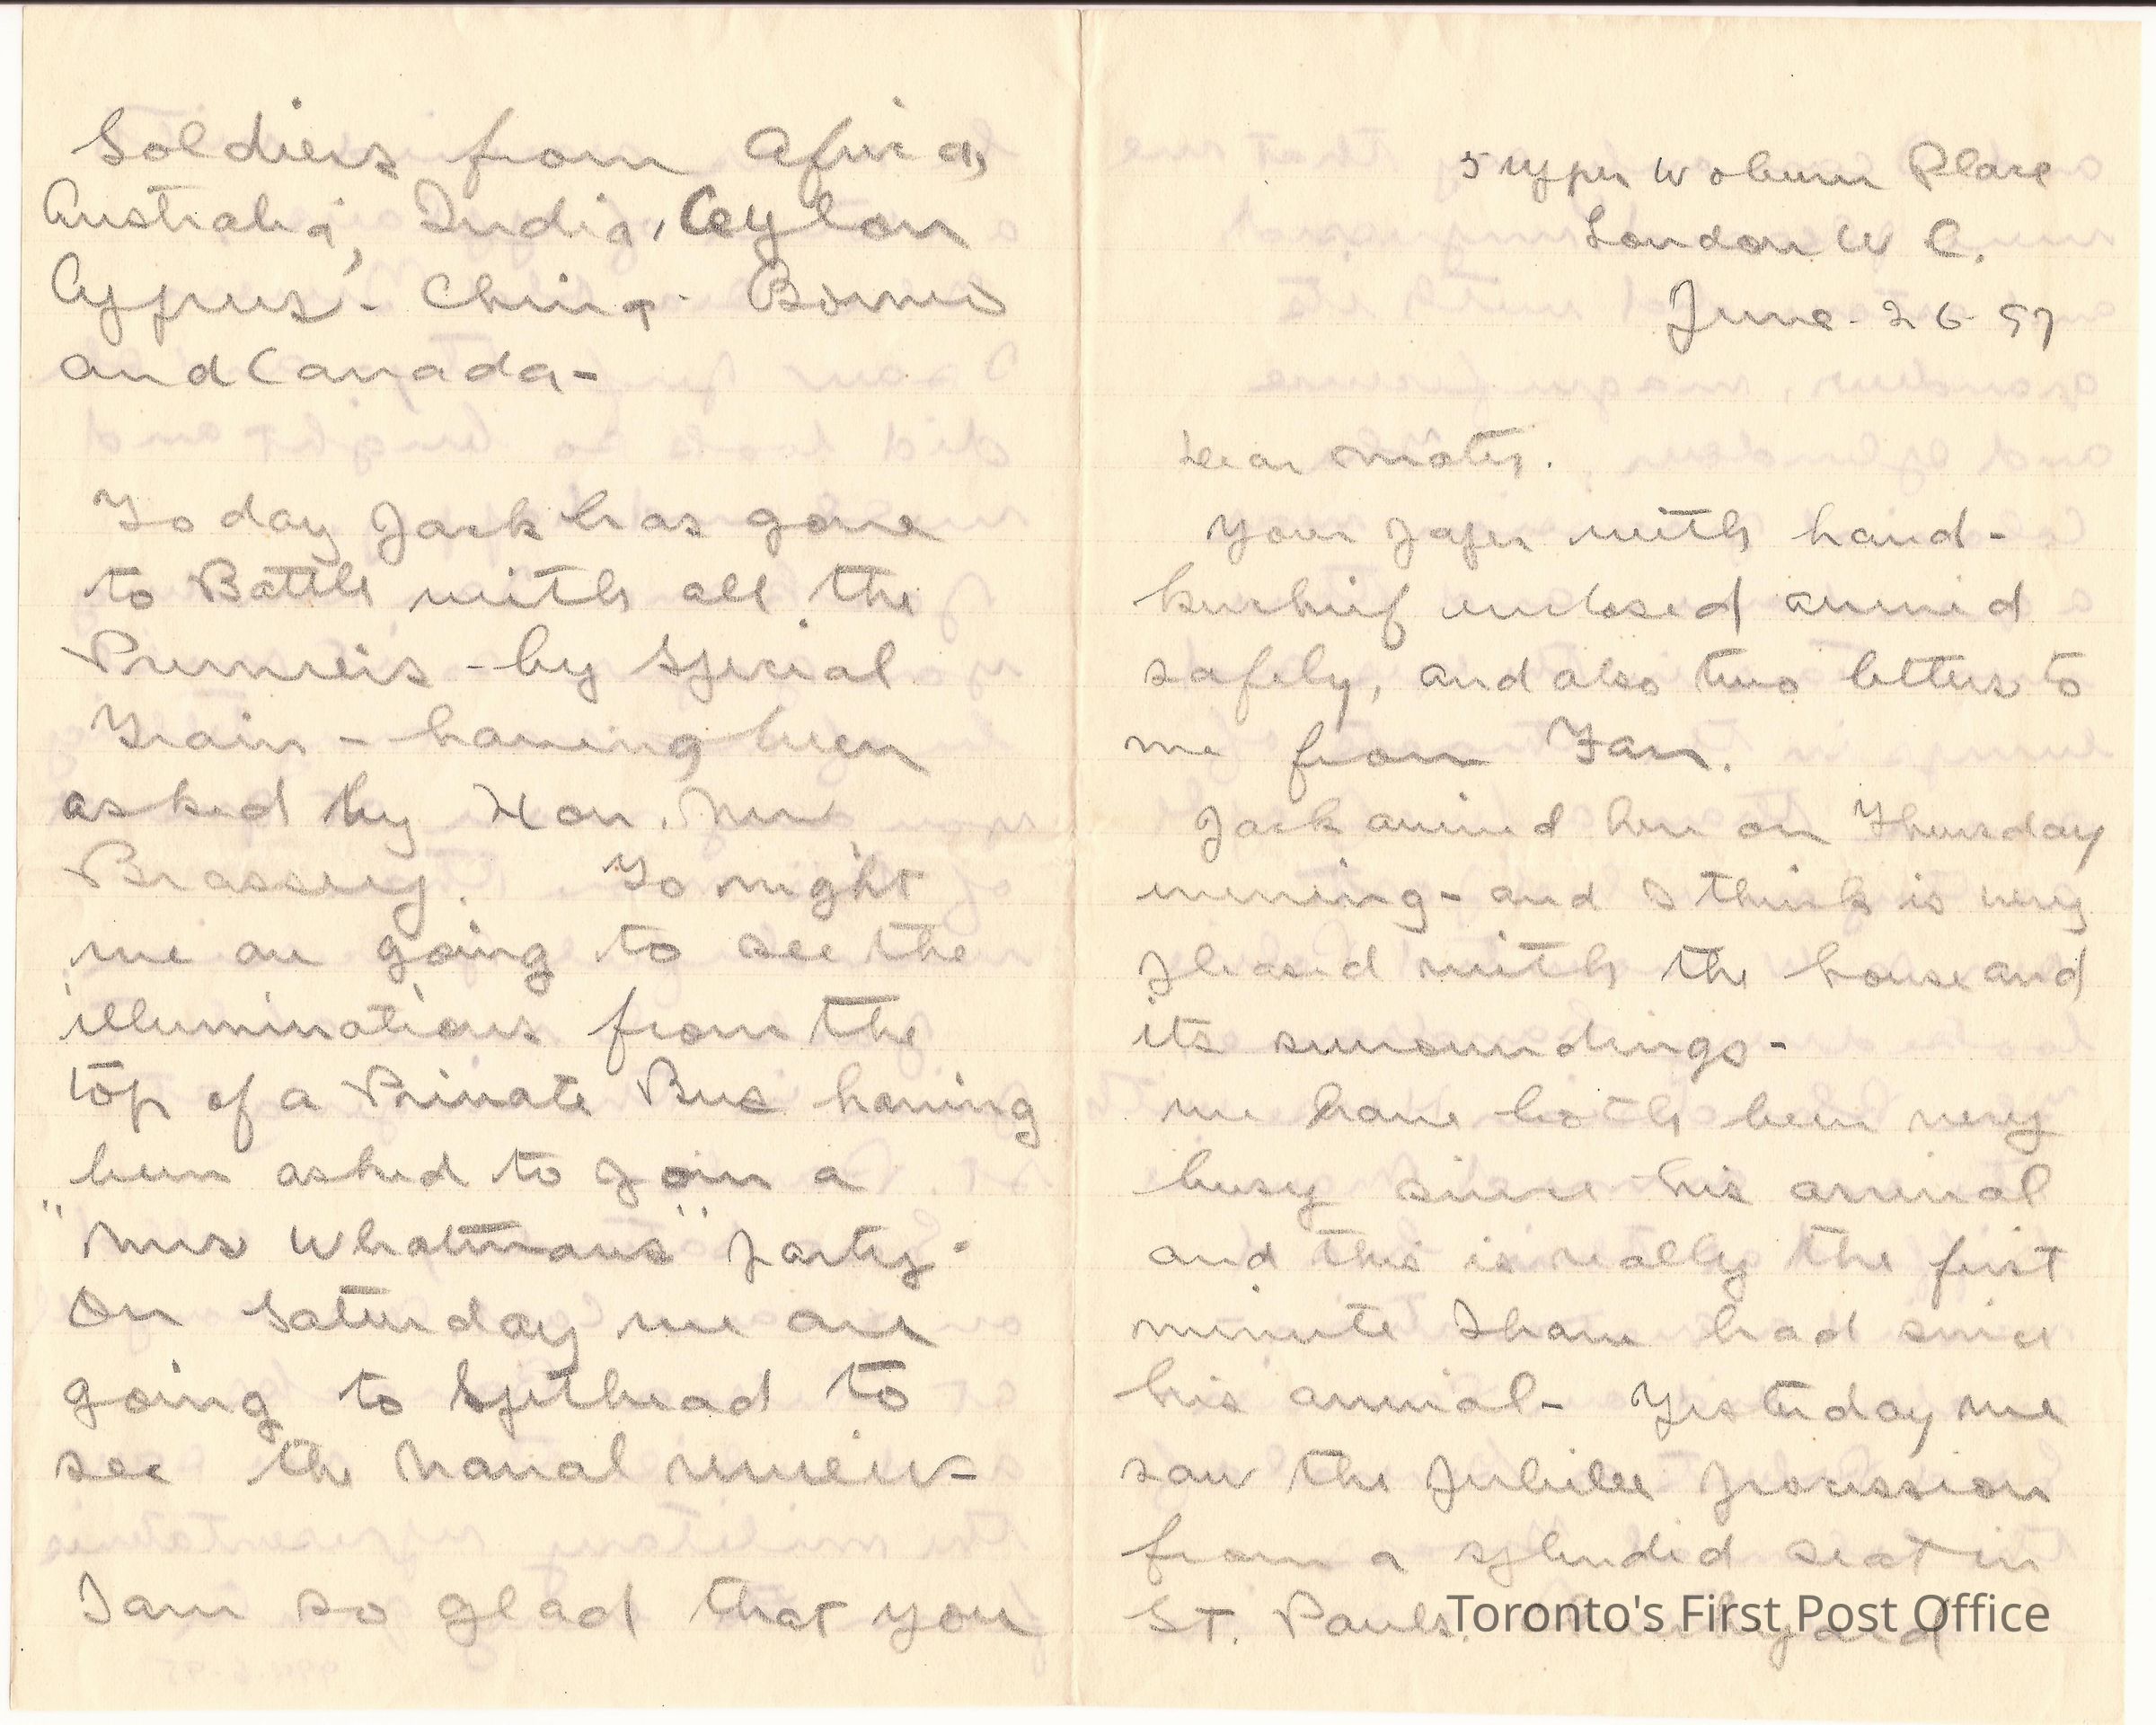 5 Upper Woburn Place
London W C.
June. 26. 97
Dear Mater.
Your paper with hand-
kerchief enclosed arrived
safely, and also two letters to
me from Fan.
Jack arrived here on Thursday
evening - and I think is very
pleased with the house and
its surroundings -
we have both been very
busy since his arrival
and this is really the first
minute I have had since
his arrival - Yesterday we
saw the Jubilee procession
from a splendid seat in
St. Pauls. Churchyard
Soldiers from Africa,
Australia, India, Ceylon
Cyprus - China - Borneo
and Canada -
To day Jack has gone
to Battle with all the
Premiers - by special
Train - having been
asked by Hon. Mr
Brassey. To night
we are going to see the
illuminations from the
top of a Private Bus having
been asked to join a
"Mrs Whatmans" party.
On Saturday we are
going to Spithead to
see the Naval review -
I am so glad that you
Toronto's First Post Office